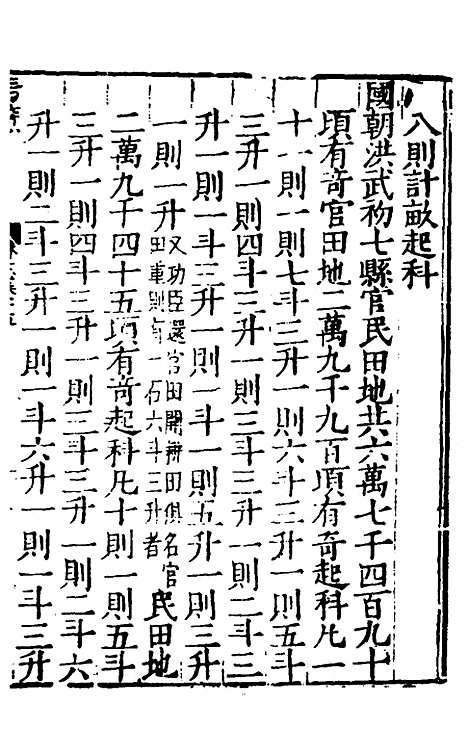 八則計畝起科
國朝洪武初七縣官民田地共六萬七千四百九十
頃有奇官田地二萬九千九百頃有奇起科凡一
十一則一則七斗三升一則六斗三升一則五斗
三升一則四斗三升一則三斗三升一則二斗三
升一則一斗三升一則一斗一則五升一則三升
一則一升又功臣還官田開耕田俱名官
田重則有一石六斗三升者民田地
二萬九千四十五頃有奇起科凡十則一則五斗
三升一則四斗三升一則三斗三升一則二斗六
升一則二斗三升一則一斗六升一則一斗三升